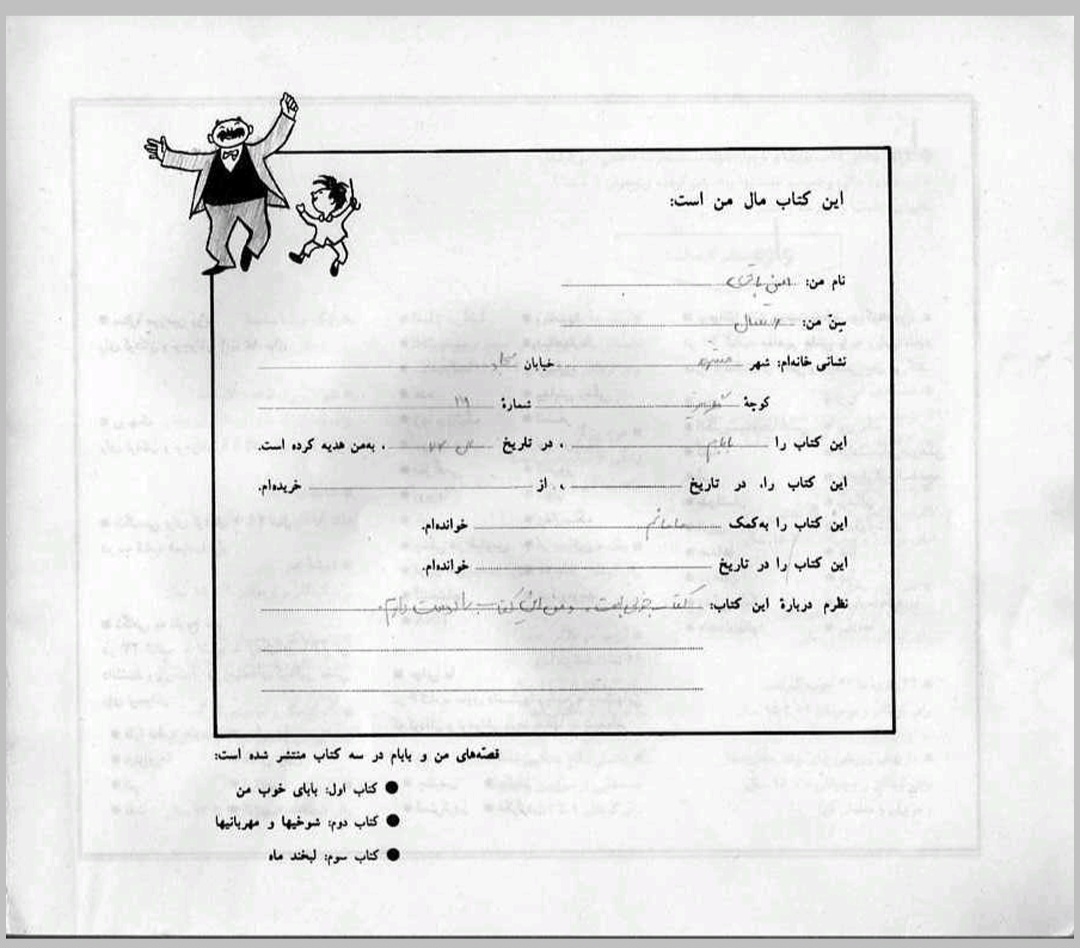 این کتاب مال من است:
نام من: امین باقری
سِنّ من: سال
نشانی خانه‌ام: شهر مشهد خیابان
کوچهٔ شمارهٔ ۱۹
این کتاب را بابام ، در تاریخ ، به‌من هدیه کرده است.
این کتاب را، در تاریخ ، از خریده‌ام.
این کتاب را به‌کمک مامانم خوانده‌ام.
این کتاب را در تاریخ خوانده‌ام.
نظرم دربارهٔ این کتاب: کتاب خوبی است. و من این کتاب را دوست دارم.
قصّه‌های من و بابام در سه کتاب منتشر شده است:
● کتاب اول: بابای خوب من
● کتاب دوم: شوخیها و مهربانیها
● کتاب سوم: لبخند ماه